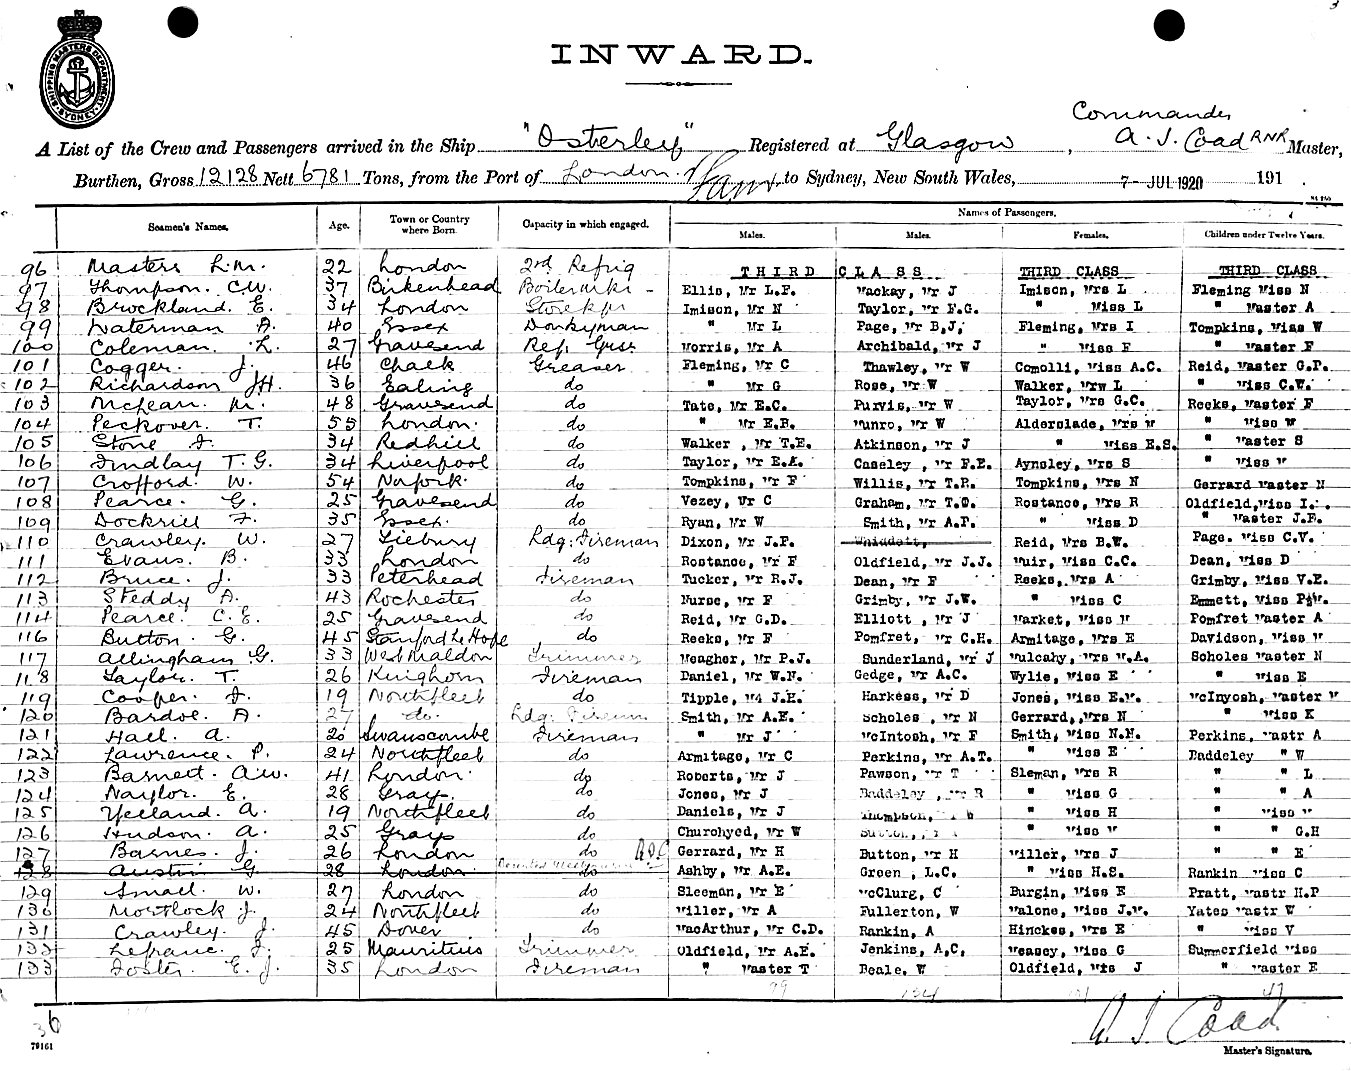 3
SHIPPING MASTERS DEPARTMENT SYDNEY
INWARD.
Commander
A List of the Crew and Passengers arrived in the Ship "Osterley" Registered at Glasgow, A. J. Coad RNR Master,
Burthen, Gross 12128 Nett 6781 Tons, from the Port of London. to Sydney, New South Wales, 7- JUL 1920 191
Seamen's Names. Age. Town or Country where Born. Capacity in which engaged. Names of Passengers.
Males. Males. Females. Children under Twelve Years.
96 Masters L.M. 22 London 2nd Refrig THIRD CLASS THIRD CLASS THIRD CLASS
97 Thompson. C.W. 37 Birkenhead Ellis, Mr L.F. Mackay, Mr J Imison, Mrs L Fleming Miss N
98 Brockland. E. 34 London Storekpr Imison, Mr N Taylor, Mr F.G. " Miss L " Master A
99 Waterman A. 40 Essex Donkyman " Mr L Page, Mr B.J. Fleming, Mrs I Tompkins, Miss W
100 Coleman. L. 27 Gravesend Refr Grsr Morris, Mr A Archibald, Mr J " Miss F " Master F
101 Cogger. J. 46 Chalk Greaser Fleming, Mr C Thawley, Mr W Comolli, Miss A.C. Reid, Master G.P.
102 Richardson J.H. 36 Ealing do " Mr G Rose, Mr W Walker, Mrw L " Miss C.W.
103 McLean. M. 48 Gravesend do Tate, Mr E.C. Purvis, Mr W Taylor, Mrs G.C. Reeks, Master F
104 Peckover. T. 55 London. do " Mr E.B. Munro, Mr W Alderslade, Mrs W " Miss W
105 Stone J. 34 Redhill do Walker, Mr T.E. Atkinson, Mr J " Miss E.S. " Master S
106 Findlay T.G. 34 Liverpool do Taylor, Mr E.A. Caseley, Mr F.E. Aynsley, Mrs S " Miss M
107 Crofford. W. 54 Norfolk. do Tompkins, Mr F Willis, Mr T.R. Tompkins, Mrs N Gerrard Master N
108 Pearce. G. 25 Gravesend do Vezey, Mr C Graham, Mr T.O. Rostance, Mrs R Oldfield, Miss I.
109 Dockrill F. 35 Essex. do Ryan, Mr W Smith, Mr A.F. " Miss D " Master J.E.
110 Crawley. W. 27 Ldg: Fireman Dixon, Mr J.P. Reid, Mrs B.W. Page. Miss C.V.
111 Evans. B. 33 London do Rostance, Mr F Oldfield, Mr J.J. Muir, Miss C.C. Dean, Miss D
112 Bruce. J. 33 Peterhead Fireman Tucker, Mr R.J. Dean, Mr F Reeks, Mrs A Grimby, Miss V.E.
113 Steddy A. 43 Rochester do Nurse, Mr F Grimby, Mr J.W. " Miss C Emmett, Miss
114 Pearce. C.E. 25 Gravesend do Reid, Mr G.D. Elliott, Mr J Market, Miss M Pomfret Master A
116 Button. G. 45 Stanford Le Hope do Reeks, Mr F Pomfret, Mr C.H. Armitage, Mrs E Davidson, Miss M
117 Allingham G. 33 West Maldon Trimmer Meagher, Mr P.J. Sunderland, Mr J Mulcahy, Mrs M.A. Scholes Master N
118 Taylor. T. 26 Kinghorn Fireman Daniel, Mr W.N. Gedge, Mr A.C. Wylie, Miss E " Miss E
119 Cooper. J. 19 Northfleet do Tipple, M4 J.H. Harkess, Mr D Jones, Miss E.M. McInyosh, Master M
120 Bardoe. A. 27 do. Ldg: Firemn Smith, Mr A.E. Scholes, Mr N Gerrard,, Mrs N " Miss K
121 Hall. A. 20 Swanscombe Fireman " Mr J McIntosh, Mr F Smith, Miss N.N. Perkins, Mastr A
122 Lawrence. P. 24 Northfleet do Armitage, Mr C Perkins, Mr A.T. " Miss E Baddeley " W
123 Barnett. A.W. 41 London. do Roberts, Mr J Pawson, Mr T Sleman, Mrs R " " L
124 Naylor. E. 28 Grays. do Jones, Mr J Baddeley, Mr R " Miss G " " A
125 Yelland. A. 19 Northfleet do Daniels, Mr J Thompson, " Miss H " Miss M
126 Hudson. A. 25 Grays do Churchyed, Mr W " Miss M " " G.H
127 Barnes. J. 26 London do Gerrard, Mr H Button, Mr H Miller, Mrs J " " E
128 Austin G. 28 London. do Ashby, Mr A.E. Green, L.C. " Miss H.S. Rankin Miss C
129 Small. W. 27 London do Sleeman, Mr E McClurg, C Burgin, Miss E Pratt, Mastr H.P
130 Mortlock J. 24 Northfleet do Miller, Mr A Fullerton, W Malone, Miss J.M. Yates Mastr W
131 Crawley. J. 45 Dover do MacArthur, Mr C.D. Rankin, A Hinckes, Mrs E " Miss V
132 Lefranc. J. 25 Mauritius Trimmer Oldfield, Mr A.E. Jenkins, A,C, Measey, Miss G Summerfield Miss
133 Foster. E.J. 35 London Fireman " Master T Beale, W Oldfield, Mis J " Master E
99 134 47
36
79161
A. J. Coad
Master's Signature.